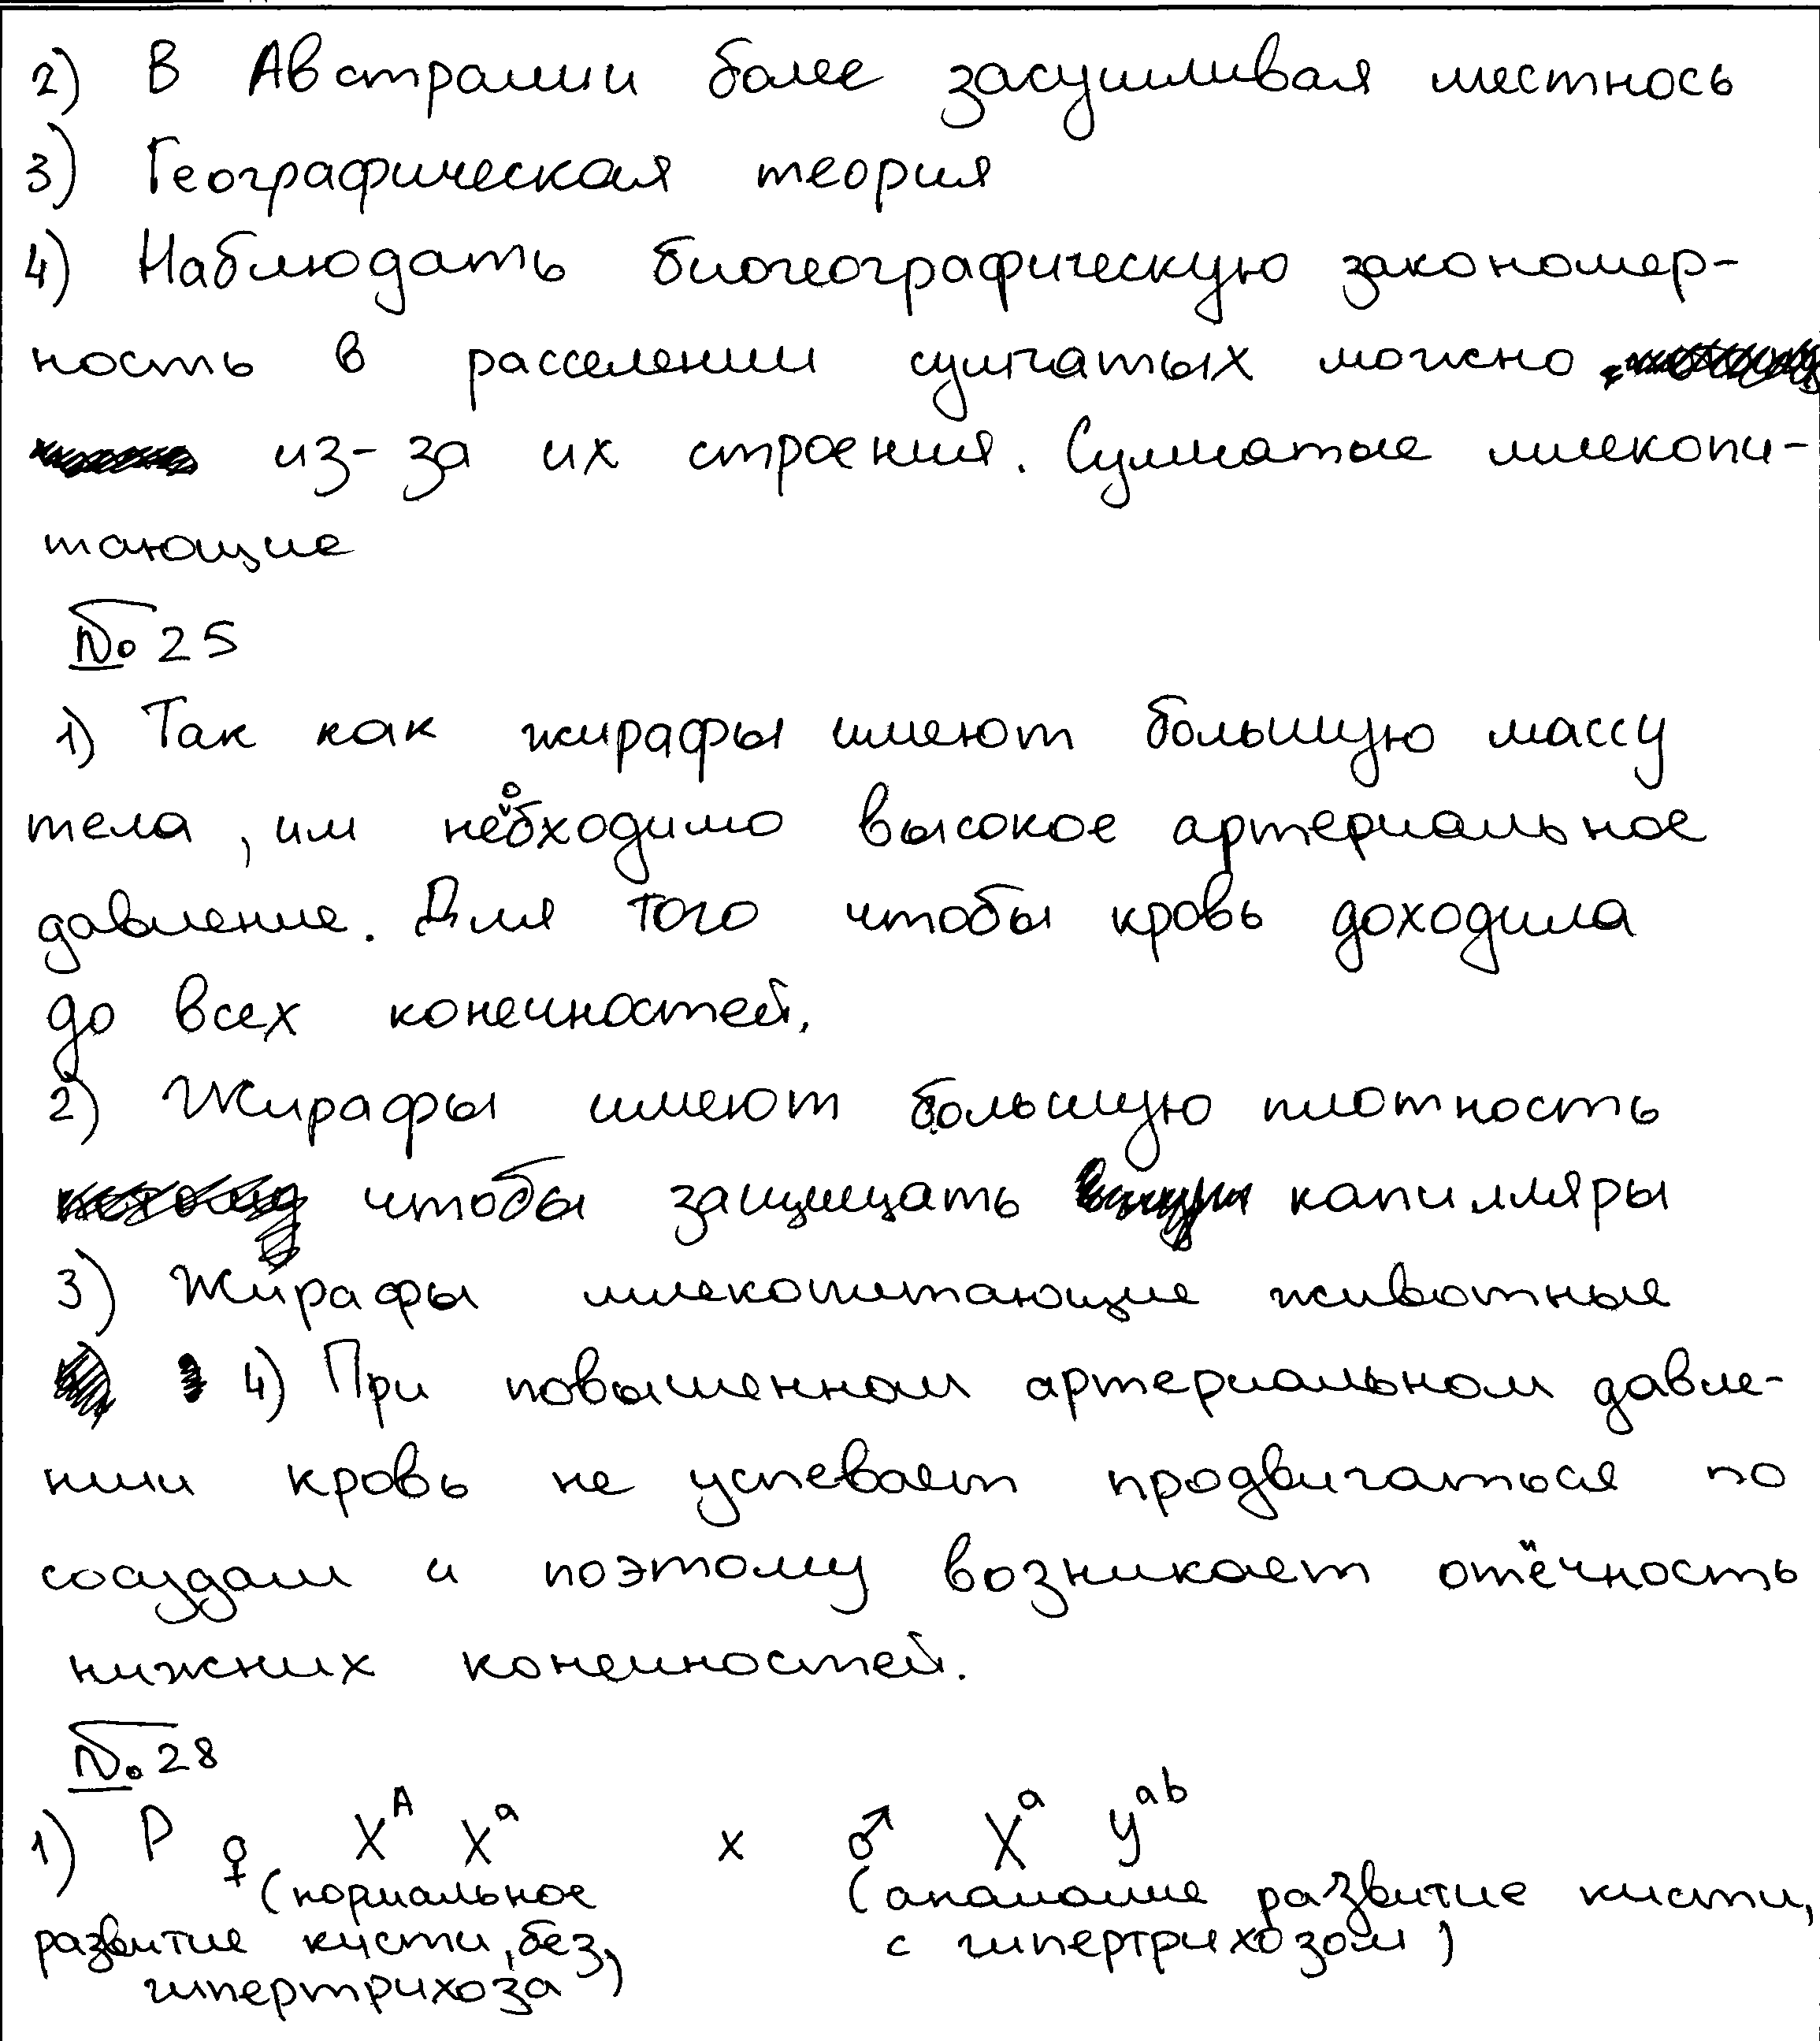 2) В Австралии более засушливая местнось
3) Географическая теория
4) Наблюдать биогеографическую закономер-
ность в расселении сумчатых можно
из-за их строения. Сумчатые млекопи-
тающие
№25
1) Так как жирафы имеют большую массу
тела, им необходимо высокое артериальное
давление. Для того чтобы кровь доходила
до всех конечностей.
2) Жирафы имеют большую плотность
чтобы защищать капилляры
3) Жирафы млекопитающие животные
4) При повышенном артериальном давле-
нии кровь не успевает продвигаться по
сосудам и поэтому возникает отёчность
нижних конечностей.
№28
1) P ♀ X^A X^a x ♂ X^a y^ab
(нормальное (аномалие развитие кисти,
развитие кисти, без с гипертрихозом)
гипертрихоза)